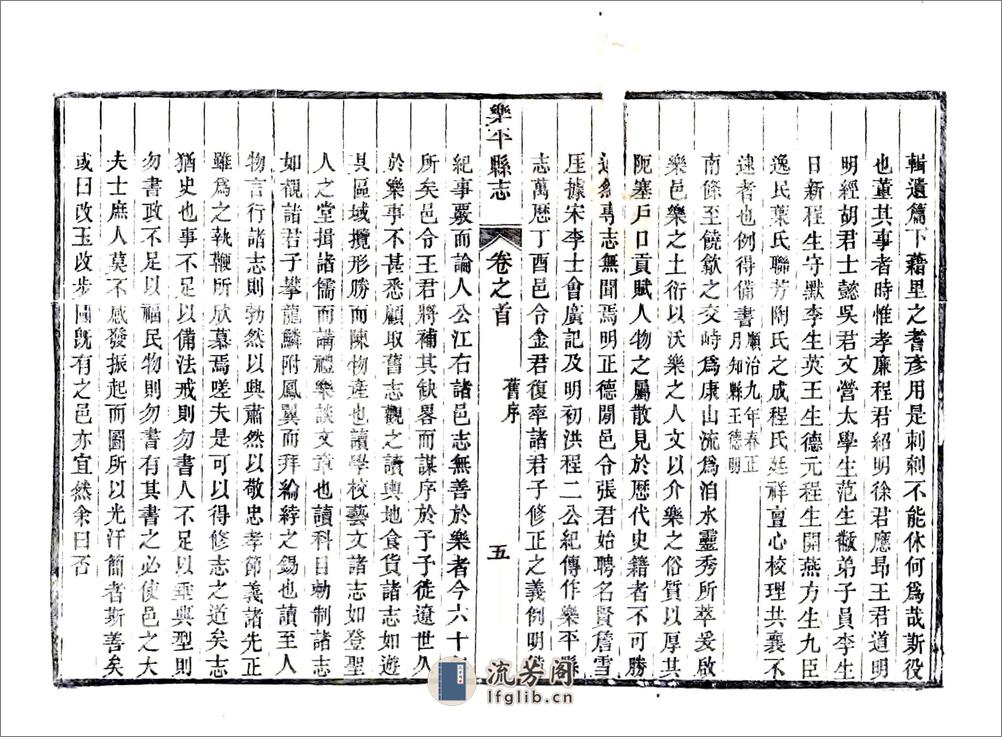 輯遺篇下藉里之耆彥用是刺刺不能休何爲哉斯役
也董其事者時惟孝廉程君紹明徐君應昂王君道明
明經胡君士懿吳君文營太學生范生
弟子員李生
日新程生守默李生英王生德元程生開燕方生九臣
逸民葉氏聯芳陶氏之成程氏廷祥亶心校理共襄不
逮者也例得備書順治九年春正
月知縣王德明
南條至饒歙之交峙爲康山流爲洎水靈秀所萃爰啟
樂邑樂之土衍以沃樂之人文以介樂之俗質以厚其
阨塞戶口貢賦人物之屬散見於歷代史籍者不可勝
專志無聞焉明正德閒邑令張君始聘名賢詹雪
厓據宋李士會廣記及明初洪程二公紀傳作樂平縣
志萬歷丁酉邑令金君復率諸君子修正之義例明
樂平縣志
卷之首
舊序
五
紀事嚴而論人公江右諸邑志無善於樂者今六十
所矣邑令王君將補其缺畧而謀序於予予徒遼世久
於樂事不甚悉顧取舊志觀之讀輿地食貨諸志如遊
其區域攬形勝而陳物產也讀學校藝文諸志如登聖
人之堂揖諸儒而講禮樂談文章也讀科目勅制諸志
如觀諸君子攀龍鱗附鳳翼而拜綸綍之錫也讀至人
物言行諸志則勃然以興肅然以敬忠孝節義諸先正
雖爲之執鞭所忻慕焉嗟夫是可以得修志之道矣志
猶史也事不足以備法戒則勿書人不足以垂典型則
勿書政不足以福民物則勿書有其書之必使邑之大
夫士庶人莫不感發振起而圖所以光汗簡者斯善矣
或曰改玉改步國旣有之邑亦宜然余曰否
流芳阁
lfglib.cn